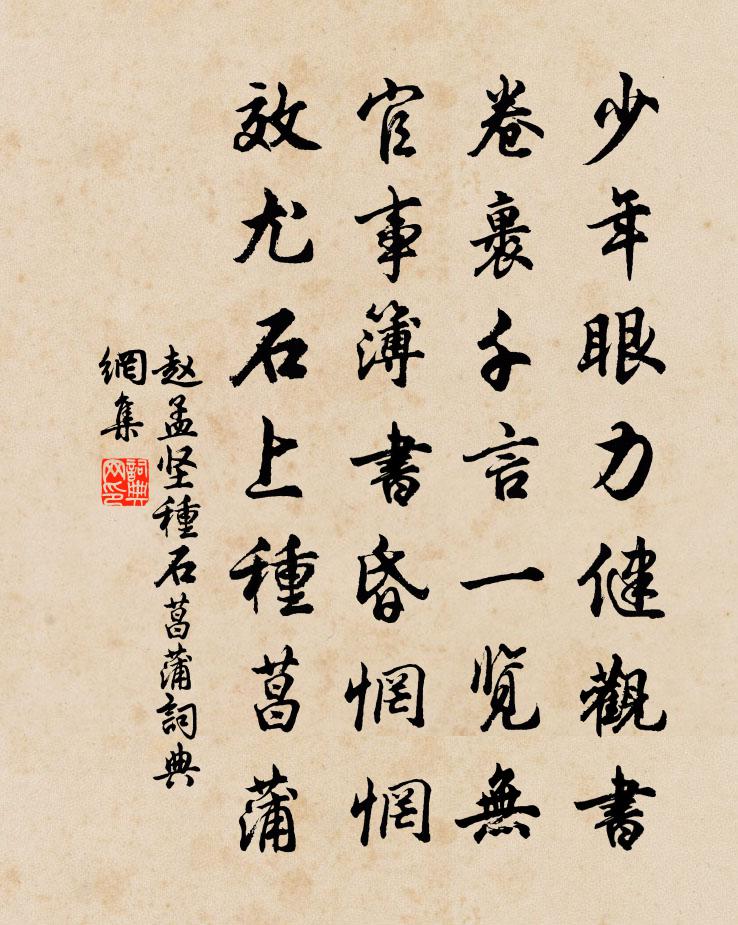 少年眼力健觀書
卷裏千言一览無
官事簿書昏惘惘
效尤石上種菖蒲
赵孟坚種石菖蒲詞典
網集
詞典
网印